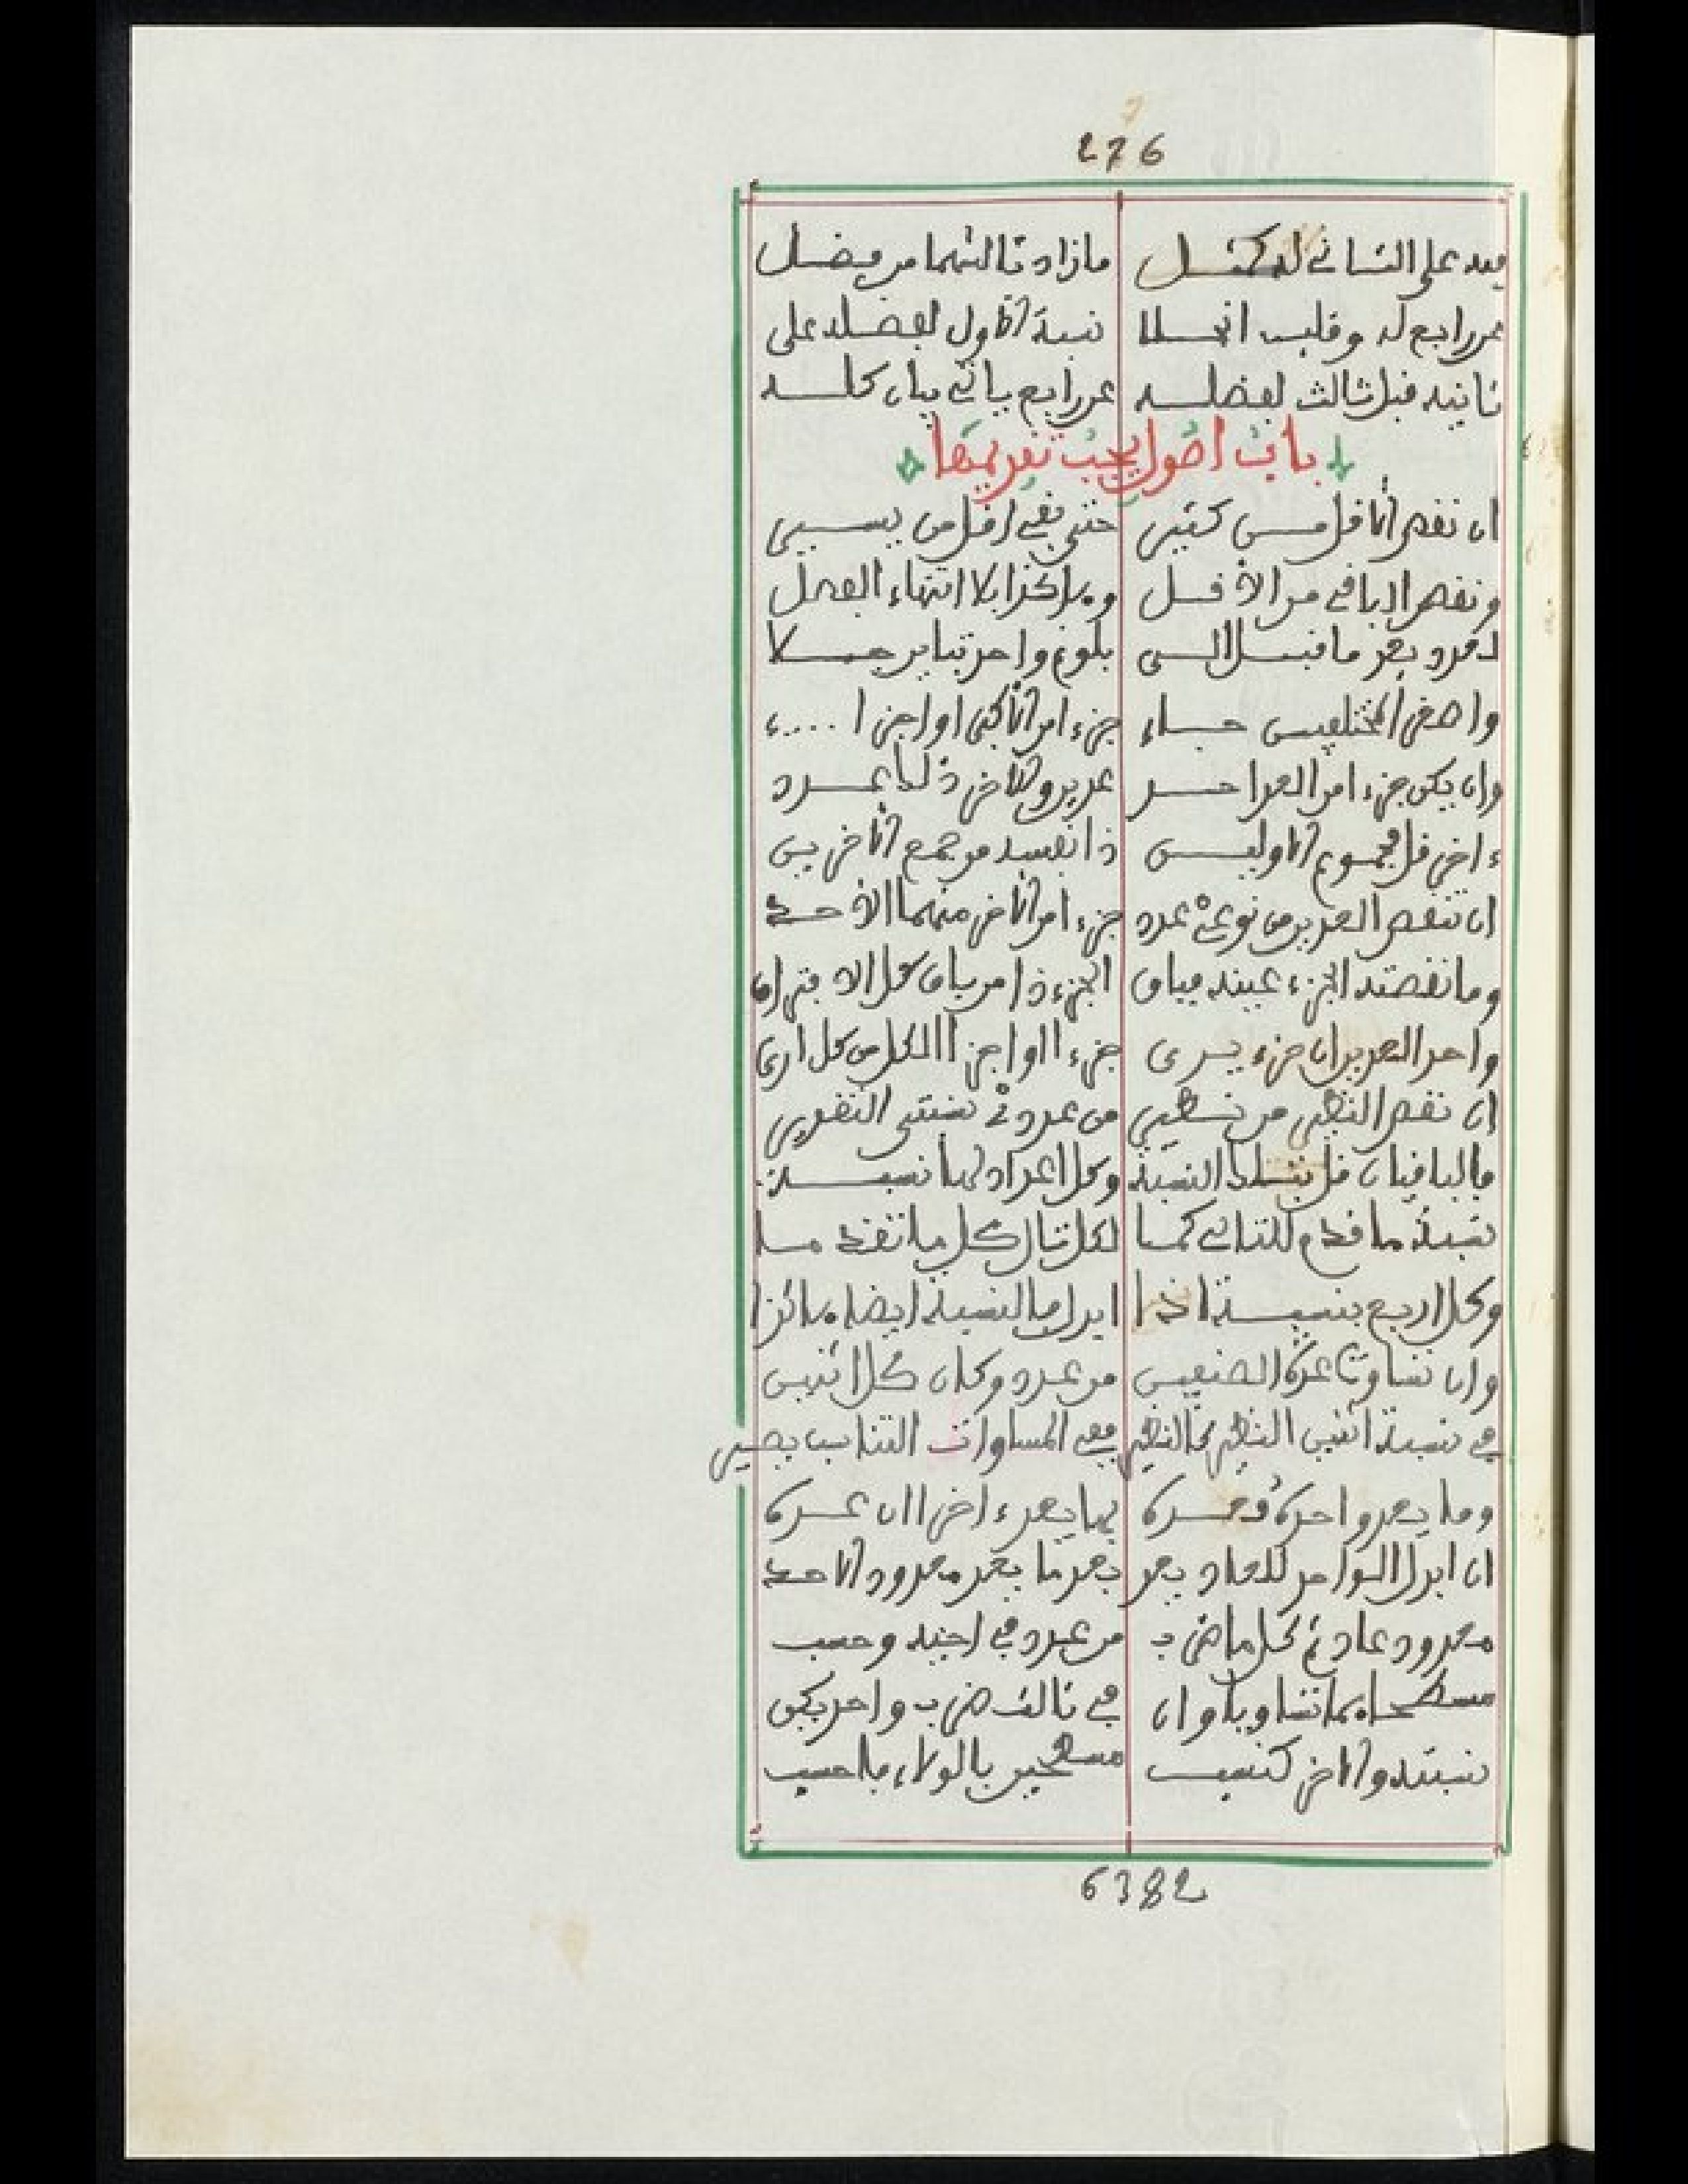 276
فيه على الثاني له كمثل ما زاد ثالثهما من فضل
عن رابع له وقلب انجلا نسبة الاول لفضله على
ثانيه قبل ثالث لفضله عن رابع ياتي بيان كله
باب اصول يجب تقديمها
ان نقص الاقل من كثير حتى بقي اقل من يسير
ونقص الباقي من الاقل وهكذا لانتهاء العمل
بعد ما قبل الى بلوغ واحد تباين جلا
واصغر المختلفين جاء جزء من الاكبر او اجزاء
وان يكن جزء من العد احد عدين والاخر ذلك عدد
ءاخر قل مجموع الاولين ذا نفسه من جمع الاخرين
ان تنقص العدين من نوعي عدد جزء من الاخر منهما الاحد
وما نقصته الجزء عينه فباق الجزء ذا من باق كل الافتراق
واحد العدين ان جزء يرى جزءا او اجزا الكل من كل ارى
ان نقص النظير من نظير من عدد في نسبتي التقدير
فالباقيان قل بتلك النسبة وكل اعداد لها نسبة
نسبة ما قدم للتالي كما لكل تال كل ما تقدما
وكل اربع بنسبة اذا ابدل فالنسبة ايضا هكذا
وان تساوت عدة الصنفين من عدد وكان كل اثنين
في نسبة اثنين النظير كالنظير ففي المساوات التناسب يصير
وما يعد واحد قد عده بها يعد ءاخر ان عده
ان ابدل الواحد للعاد يعد بعد ما يعد معدود الاحد
معدود عاد ثم كل ما ضرب من عدد في اجنبه وحسب
مسطحاهما تساويا وان في ثالث ضرب واحد يكن
نسبته والاخر كنسب مسطحين بالولاء فاحسب
6382